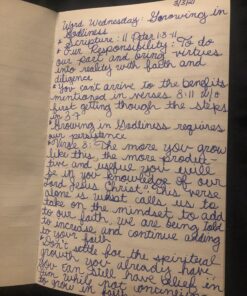 3/3/21
Word Wednesday: Growing in
Godliness
* Scripture: II Peter 1:3-11
* Our Responsibility: To do
our part and bring virtues
into reality with faith and
diligence
* You can't arrive to the benefits
mentioned in verses 8-11 w/o
first getting though the steps
in 3-7
* Growing in Godliness requires
our persistence
* Verse 8: The more you grow
like this, the more produc-
tive and useful you will
be in you knowledge of our
Lord Jesus Christ". This verse
alone is what calls us to
take on the mindset to add
to our faith. We are being told
to increase and continue adding
to your faith
* Don't settle for the spiritual
growth you already have
You can still have belief in
while not continuing
to grow in faith